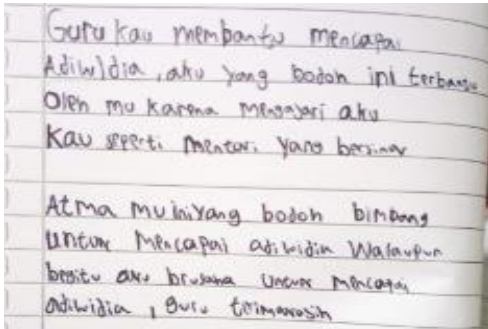 Guru kau membantu mencapai
Adiwidia, aku yang bodoh ini terbantu
Oleh mu karena mengajari aku
Kau seperti mentari yang bersinar
Atma mu ini yang bodoh bimbang
untuk mencapai adiwidia walaupun
begitu aku brusaha untuk mencapai
adiwidia, guru terimakasih